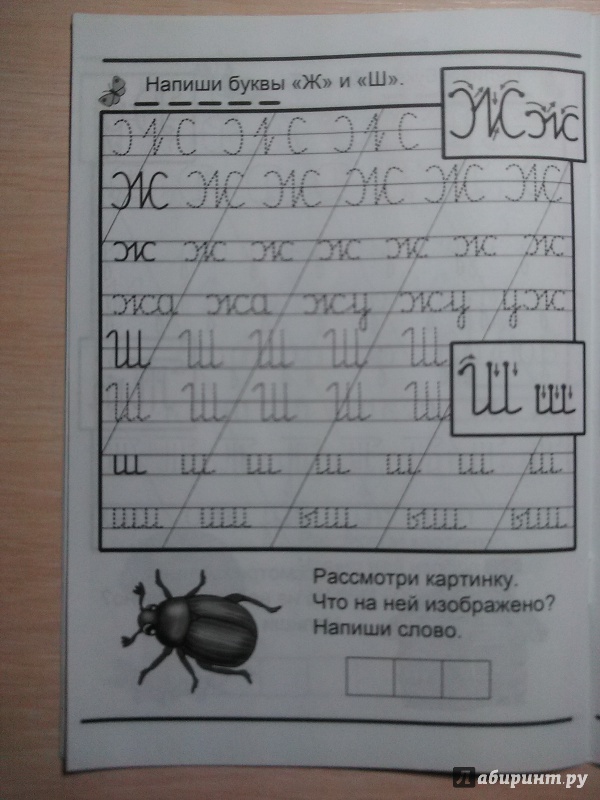 Напиши буквы «Ж» и «Ш».
Ж ж
Ж Ж Ж Ж Ж Ж
ж ж ж ж ж ж ж
жа жа жу жу уж
Ш Ш Ш Ш Ш
Ш ш
Ш Ш Ш Ш Ш
ш ш ш ш ш ш ш
Рассмотри картинку.
Что на ней изображено?
Напиши слово.
Лабиринт.ру